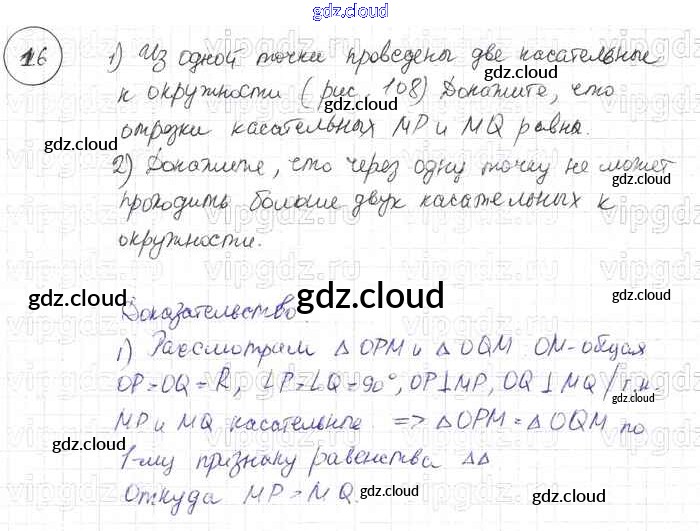 gdz.cloud
16 1) Из одной точки проведены две касательные
к окружности (рис. 108) Докажите, что
отрезки касательных MP и MQ равны.
2) Докажите, что через одну точку не может
проходить больше двух касательных к
окружности.
gdz.cloud
Доказательство:
1) Рассмотрим △OPM и △OQM OM-общая
OP=OQ=R, ∠P=∠Q=90°, OP⊥MP, OQ⊥MQ /т.к.
MP и MQ касательные => △OPM=△OQM по
1-му признаку равенства △△
Откуда MP=MQ.